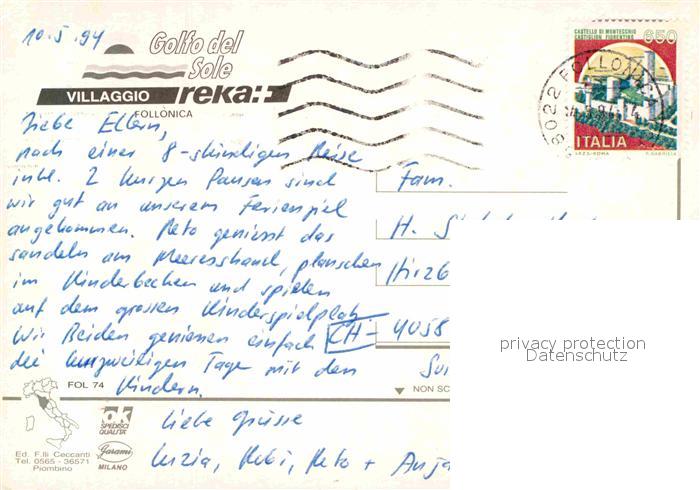 10.5.94
Golfo del
Sole
VILLAGGIO reka:
FOLLÒNICA
CASTELLO DI MONTECCHIO
CASTIGLION FIORENTINO
650
ITALIA
I.P.Z.S.-ROMA
58022 FOLLONICA
Liebe Eltern,
nach einer 8-stündigen Reise
inkl. 2 kurzen Pausen sind
wir gut an unserem Ferienziel
angekommen. Reto geniesst das
sandeln am Meeresstrand, planschen
im Kinderbecken und spielen
auf dem grossen Kinderspielplatz
Wir Beiden geniessen einfach
die kurzweiligen Tage mit den
Kindern.
Liebe Grüsse
Reto + Anja
Fam.
H.
Hirzb
CH- 4058
privacy protection
Datenschutz
FOL 74
NON SC
OK
SPEDISCI
QUALITÀ
Garami
MILANO
Ed. F.lli Ceccanti
Tel. 0565 - 36571
Piombino